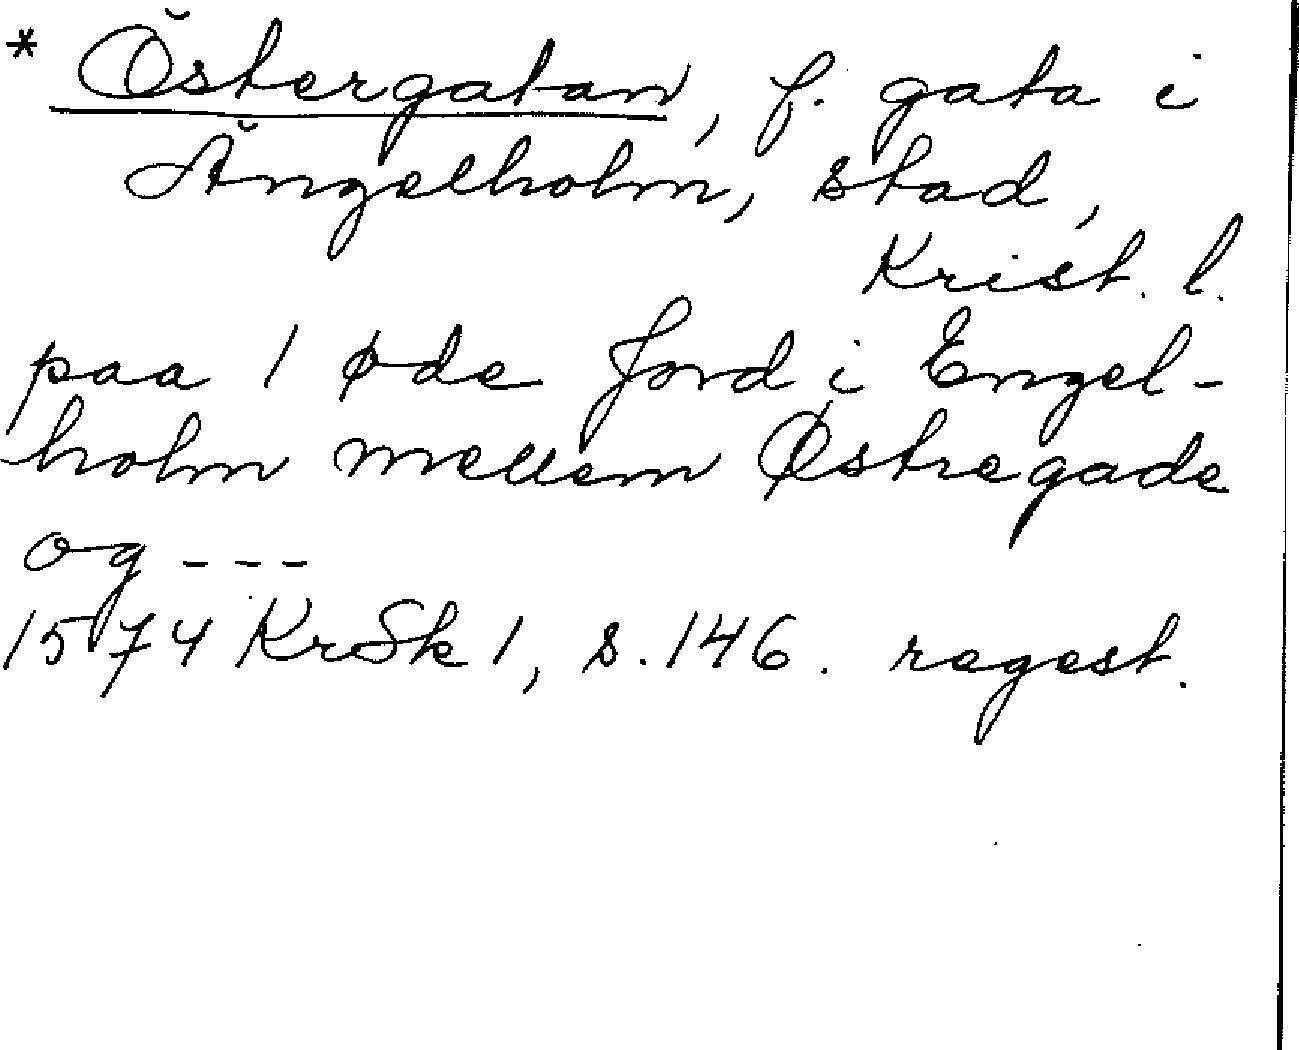 * Östergatan, f. gata i
Ängelholm, stad,
Krist. l.
paa 1 øde Jord i Engel-
holm mellem Østregade
og ---
1574 KrSk 1, s. 146. regest.